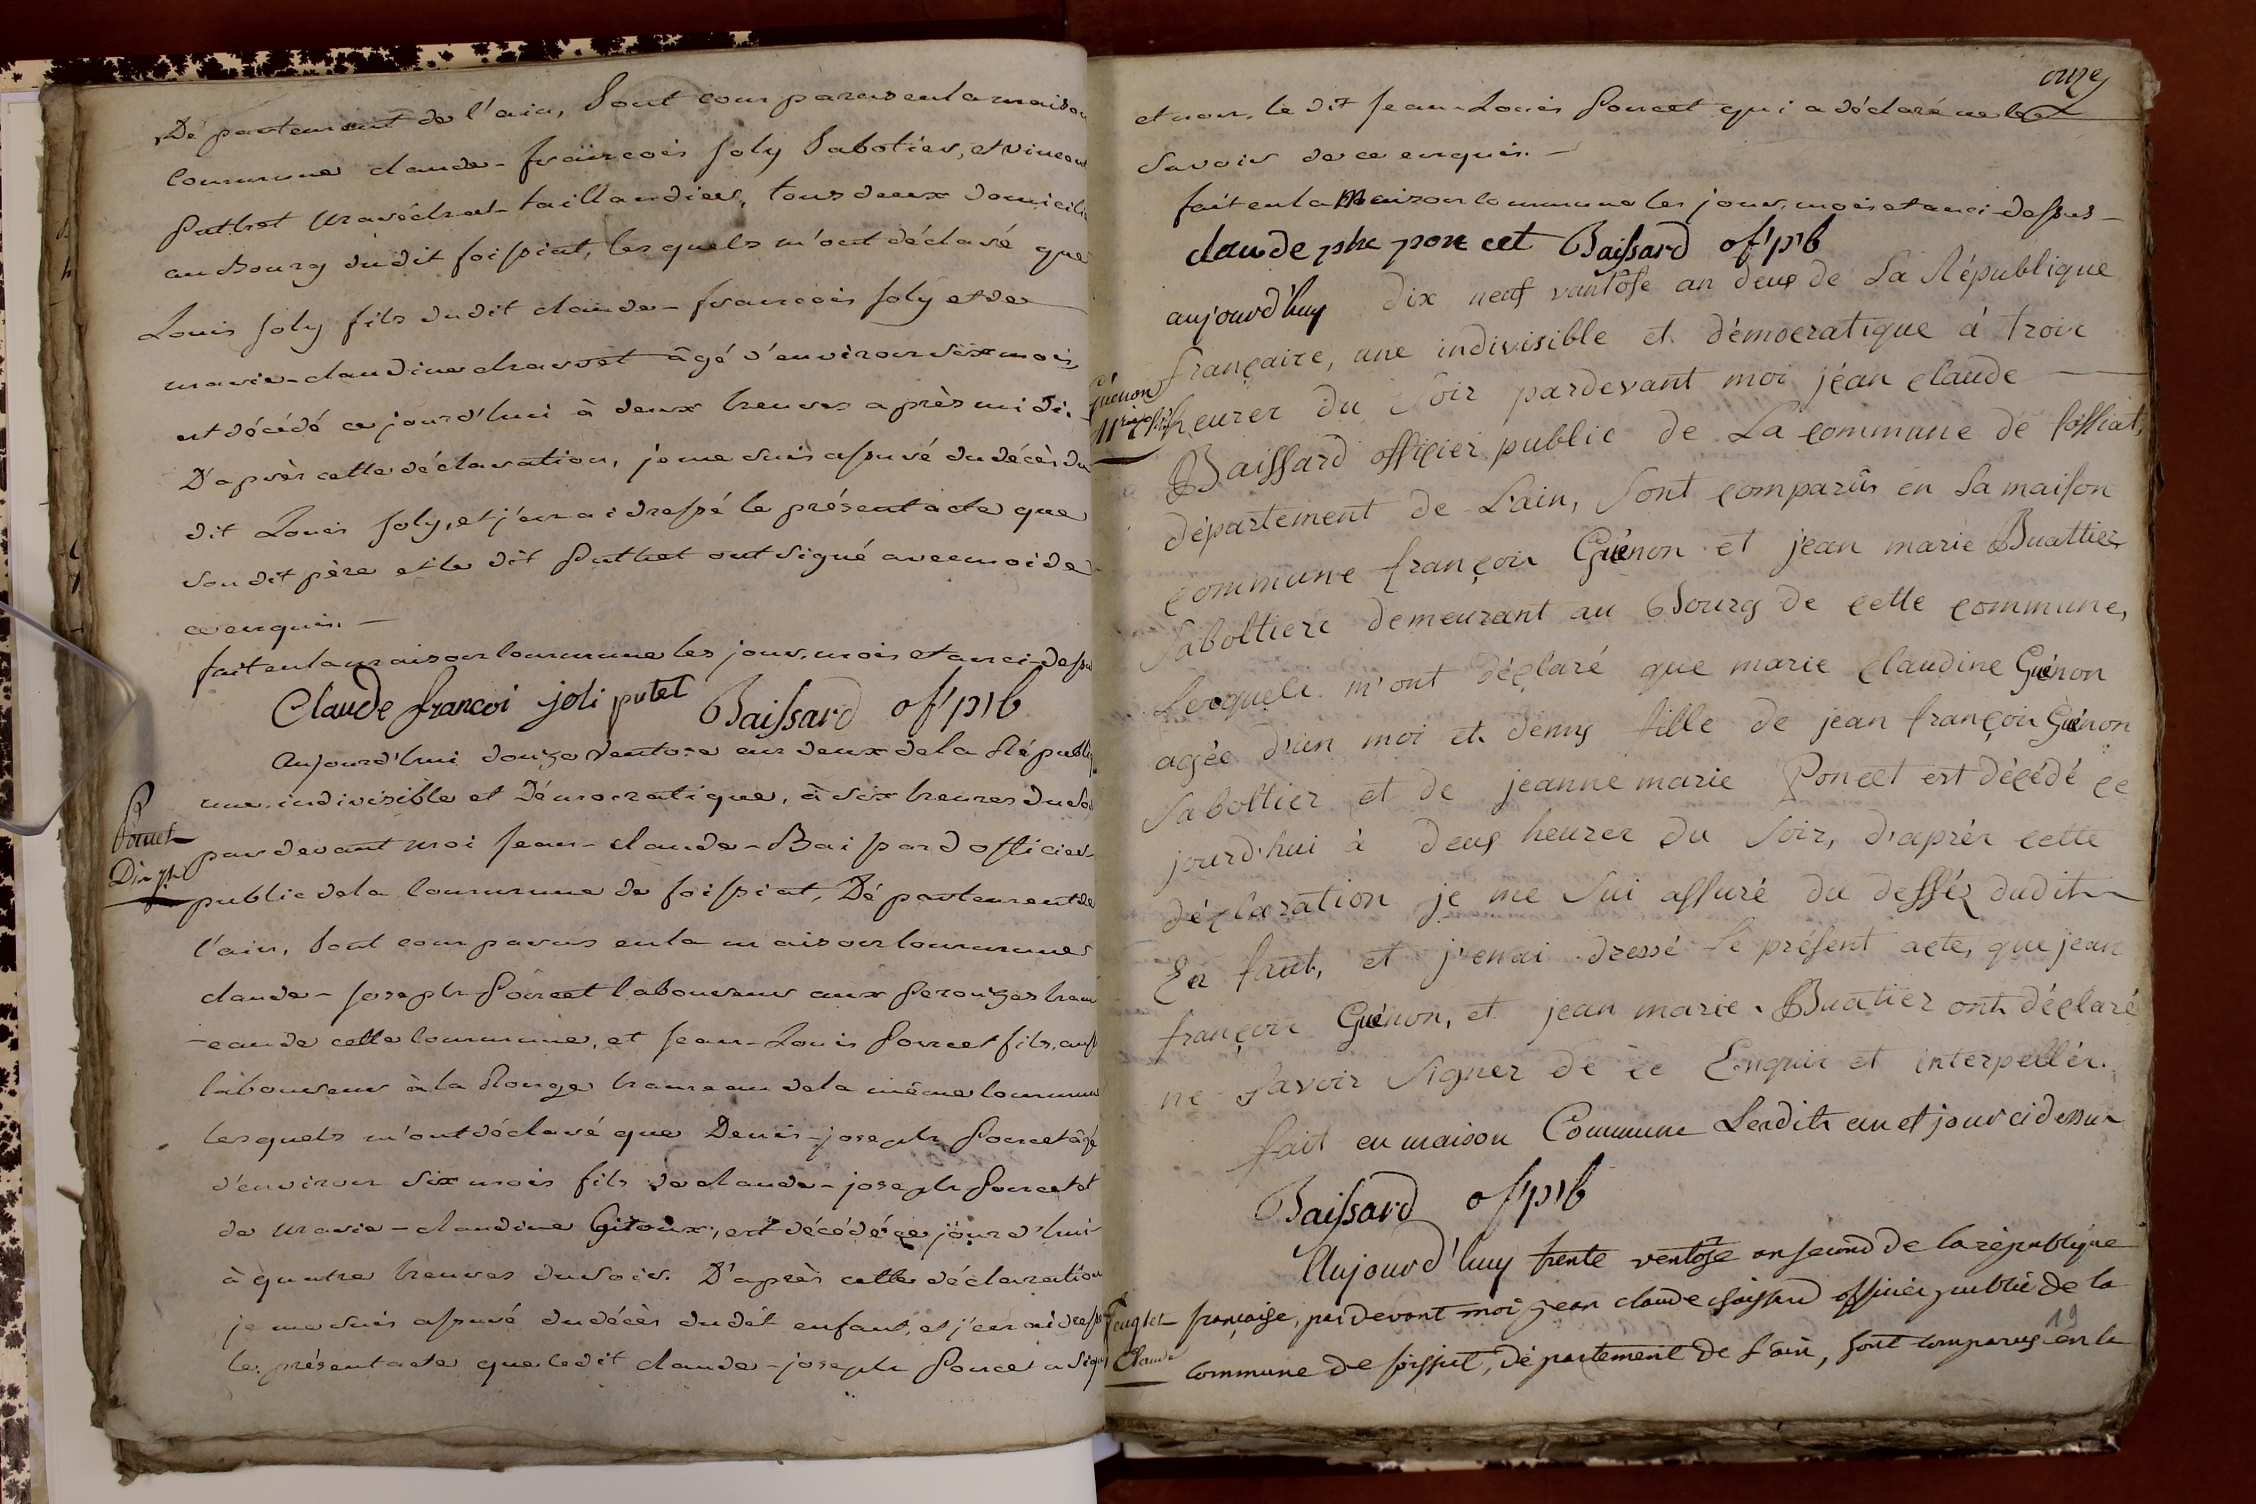 Département de l'ain, sont comparus en la maison
commune claude-françois Joly Sabotier, et vincent
Puthet maréchal-taillandier, tous deux domicili
au Bourg dudit foissiat, lesquels m'ont déclaré que
Louis Joly fils dudit claude-françois Joly et de
marie-claudine charvet âgé d'environ six mois
est décédé ce jourd'hui à deux heures après midi.
D'après cette déclaration, je me suis assuré du décès du
dit Louis Joly, et j'en ai dressé le présent acte que
son dit père et le dit Puthet ont signé avec moi de
ce enquis.
fait en la maison commune les jour, mois et an ci-dessu
Claude francoi joli putet Baissard of' p'b
Aujourd'hui douze ventose an deux de la Républiq
une indivisible et Démocratique, à six heures du so
Poncet
par devant moi Jean-claude-Baissard officier
Dis jh
public de la commune de foissiat, Département de
l'ain, sont comparus en la maison commune
claude-Joseph Poncet laboureur aux ham
-eau de cette commune, et Jean-Louis Poncet fils, aussi
laboureur à la Rouge hameau de la même commune
lesquels m'ont déclaré que Denis-joseph Poncet âgé
d'environ six mois fils de claude-joseph Poncet et
de marie-claudine Gitoux, est décédé ce jourd'hui
à quatre heures du soir. D'après cette déclaration
je me suis assuré du décès dudit enfant, et j'en ai dressé
le présent acte que ledit claude-joseph Poncet a signé
onze
et non le dit Jean-Louis Poncet qui a déclaré ne le
savoir de ce enquis.
fait en la Maison commune les jour, mois et an ci-dessus
claude ph poncet Baissard of' p'b
aujourd'huy dix neuf vantôse an deux de La République
françaire, une indivisible et démocratique à troir
Guénon
heurer du soir pardevant moi jéan claude
Baissard officier public de La commune de foissiat,
département de L'ain, Sont comparûs en La maison
commune françoir Guénon et jean marie Buattier
Saboltierc demeurant au Bourg de cette commune,
Lesquelr m'ont déclaré que marie claudine Guénon
agée d'un moi et demy fille de jean françoir Guénon
Saboltier et de jeanne marie Poncet est décédé ce
jourd'hui à deux heurer du Soir, d'aprér cette
déclaration je me Sui assuré du dessés dudit
En fant, et j'enai dressé Le présent acte, que jean
françoir Guénon, et jean marie Buatier ont déclaré
ne Savoir Signer de ce Enquir et interpellér.
fait en maison Commune Lesdits an et jour ci dessus
Baissard of' p'b
Aujourd'huy trente ventose an second de la république
française, pardevant moi Jean claude Baissard officier public de la
Claude
commune de foissiat, département de L'ain, sont comparus en la
19